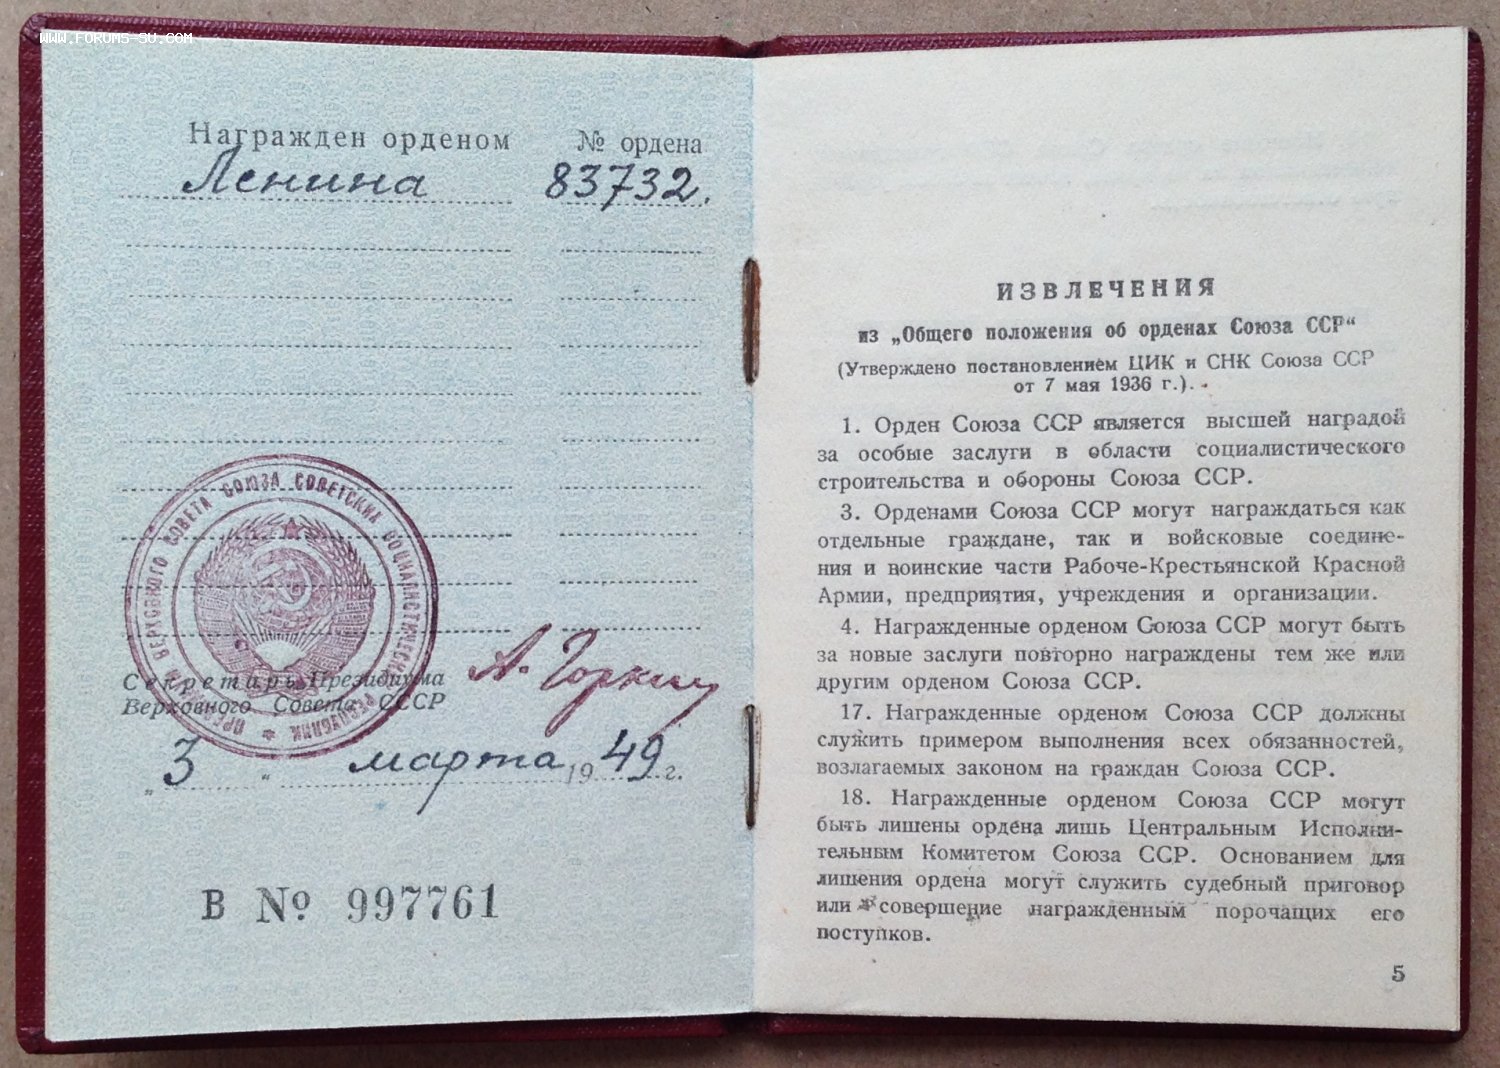 WWW.FORUMS-SU.COM
Награжден орденом № ордена
Ленина 83732.
ПРЕЗИДИУМ ВЕРХОВНОГО СОВЕТА СОЮЗА СОВЕТСКИХ СОЦИАЛИСТИЧЕСКИХ РЕСПУБЛИК
Секретарь Президиума
Верховного Совета СССР
А. Горкин
„3" марта 1949 г.
В № 997761
ИЗВЛЕЧЕНИЯ
из „Общего положения об орденах Союза ССР“
(Утверждено постановлением ЦИК и СНК Союза ССР
от 7 мая 1936 г.).
1. Орден Союза ССР является высшей наградой
за особые заслуги в области социалистического
строительства и обороны Союза ССР.
3. Орденами Союза ССР могут награждаться как
отдельные граждане, так и войсковые соедине-
ния и воинские части Рабоче-Крестьянской Красной
Армии, предприятия, учреждения и организации.
4. Награжденные орденом Союза ССР могут быть
за новые заслуги повторно награждены тем же или
другим орденом Союза ССР.
17. Награжденные орденом Союза ССР должны
служить примером выполнения всех обязанностей,
возлагаемых законом на граждан Союза ССР.
18. Награжденные орденом Союза ССР могут
быть лишены ордена лишь Центральным Исполни-
тельным Комитетом Союза ССР. Основанием для
лишения ордена могут служить судебный приговор
или совершение награжденным порочащих его
поступков.
5